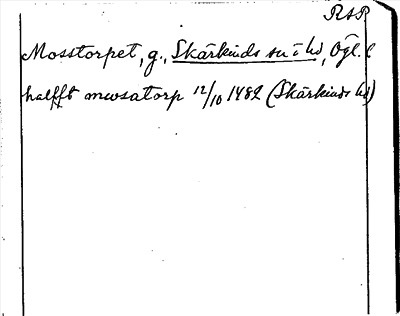 RAP
Mosstorpet, g., Skärkinds sn i hd, Ögl. l
halfft mwsatorp 12/10 1482 (Skärkinds hd)